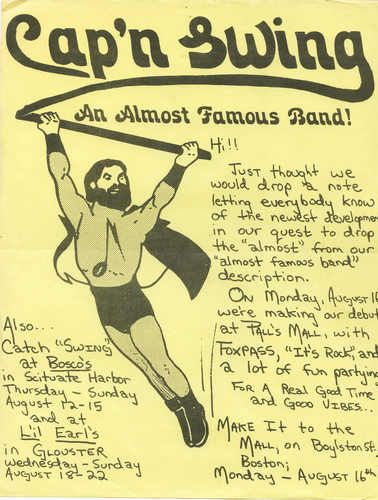 Cap'n Swing
An Almost Famous Band!
Hi!!
Just thought we
would drop a note
letting everybody know
of the newest developmen
in our quest to drop
the "almost" from our
"almost famous band"
description.
On Monday, August 16
we're making our debut
at Pall's Mall, with
Foxpass, "It's Rock", and
a lot of fun partyin
For A Real Good Time
and Good Vibes...
Make It to the
Mall, on Boylston St.
Boston;
Monday - August 16th
Also...
Catch "Swing"
at Bosco's
in Scituate Harbor
Thursday - Sunday
August 12-15
and at
Li'l Earl's
in Glouster
Wednesday - Sunday
August 18-22